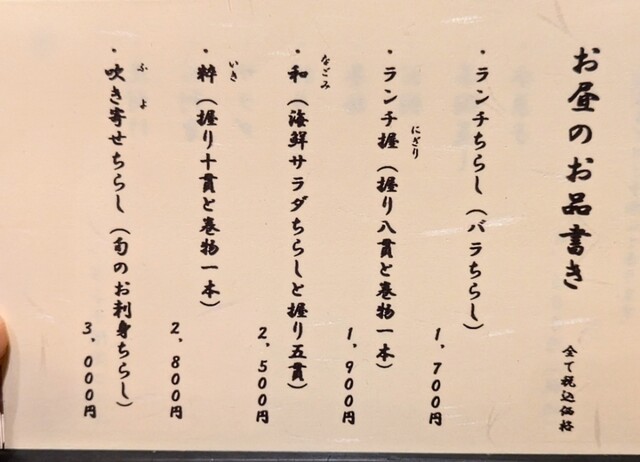 お昼のお品書き
全て税込価格
・ランチちらし（バラちらし）
1,700円
・ランチ握（握り八貫と巻物一本）
にぎり
1,900円
・和（海鮮サラダちらしと握り五貫）
なごみ
2,500円
・粋（握り十貫と巻物一本）
いき
2,800円
・吹き寄せちらし（旬のお刺身ちらし）
ふよ
3,000円